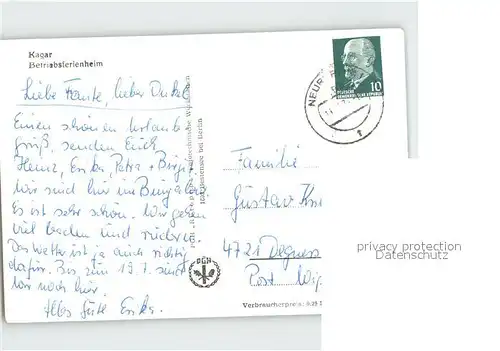 Kagar
Betriebsferienheim
Liebe Tante, lieber Onkel
Einen schönen Urlaubs
gruß, senden Euch
Heinz, Erika, Petra + Birgit
wir sind hier im Bungalow.
Es ist sehr schön. Wir gehen
viel baden und rudern.
Das Wetter ist ja auch richtig
dafür. Bis zum 19.7. sind
wir noch hier.
Alles Gute Erika.
PGH
Berlin
NEUR
DEUTSCHE
DEMOKRATISCHE REPUBLIK
10
Familie
Gustav
4721
Post
Verbraucherpreis:
privacy protection
Datenschutz